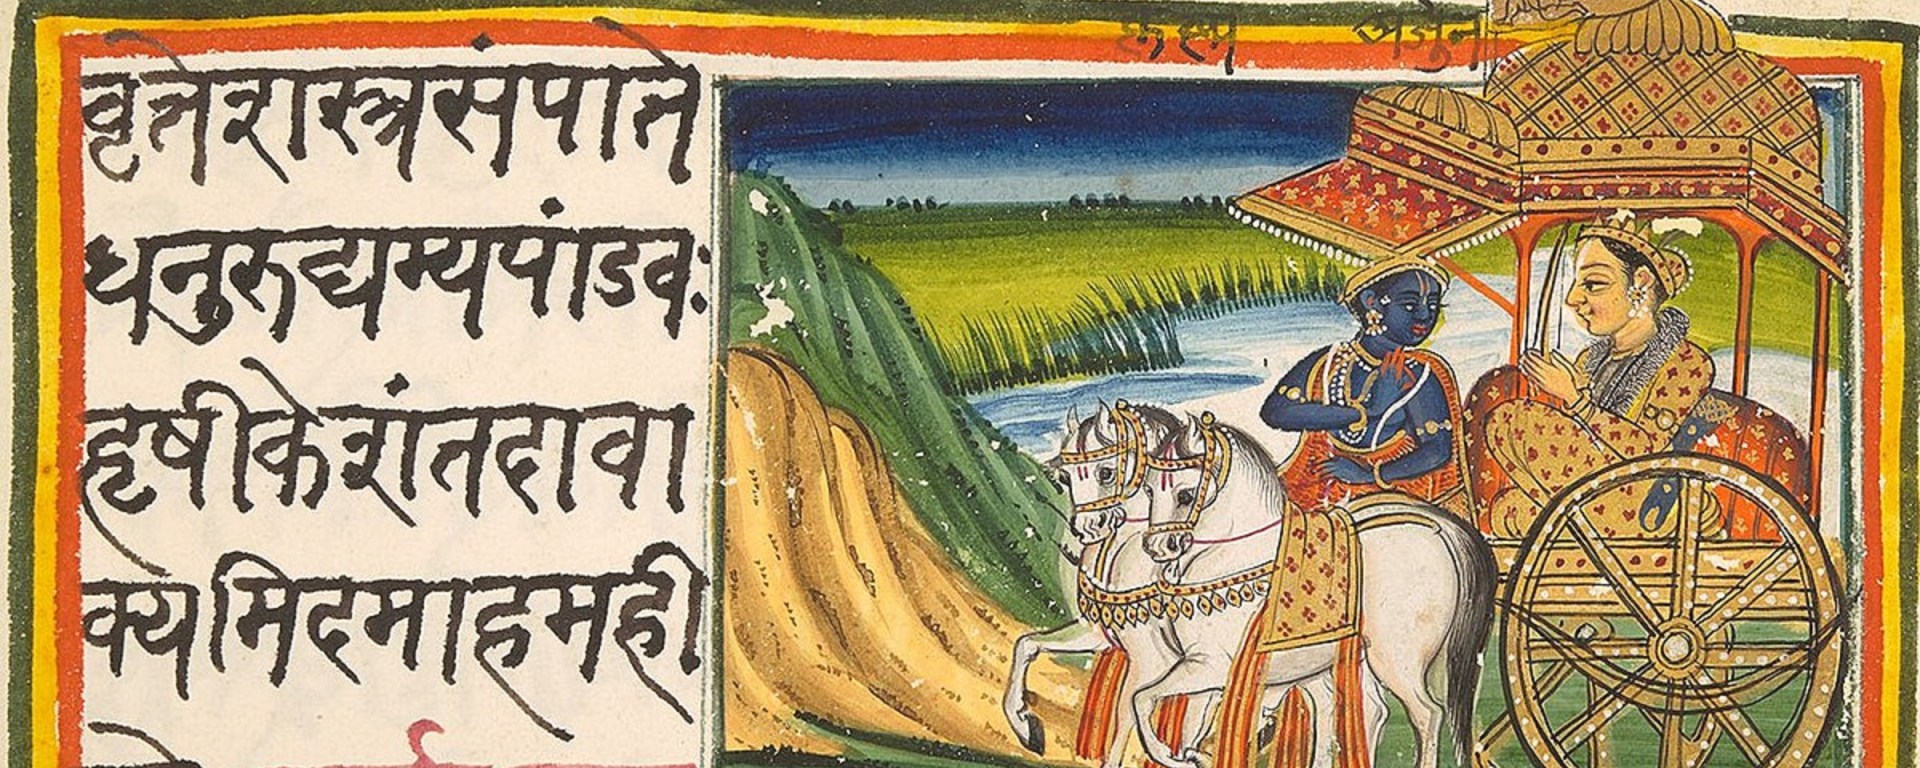 कृष्ण अर्जुन
वृत्तेशस्त्रसंपाते
धनुरुद्यम्यपांडवः
हृषीकेशंतदावा
क्यमिदमाहमही